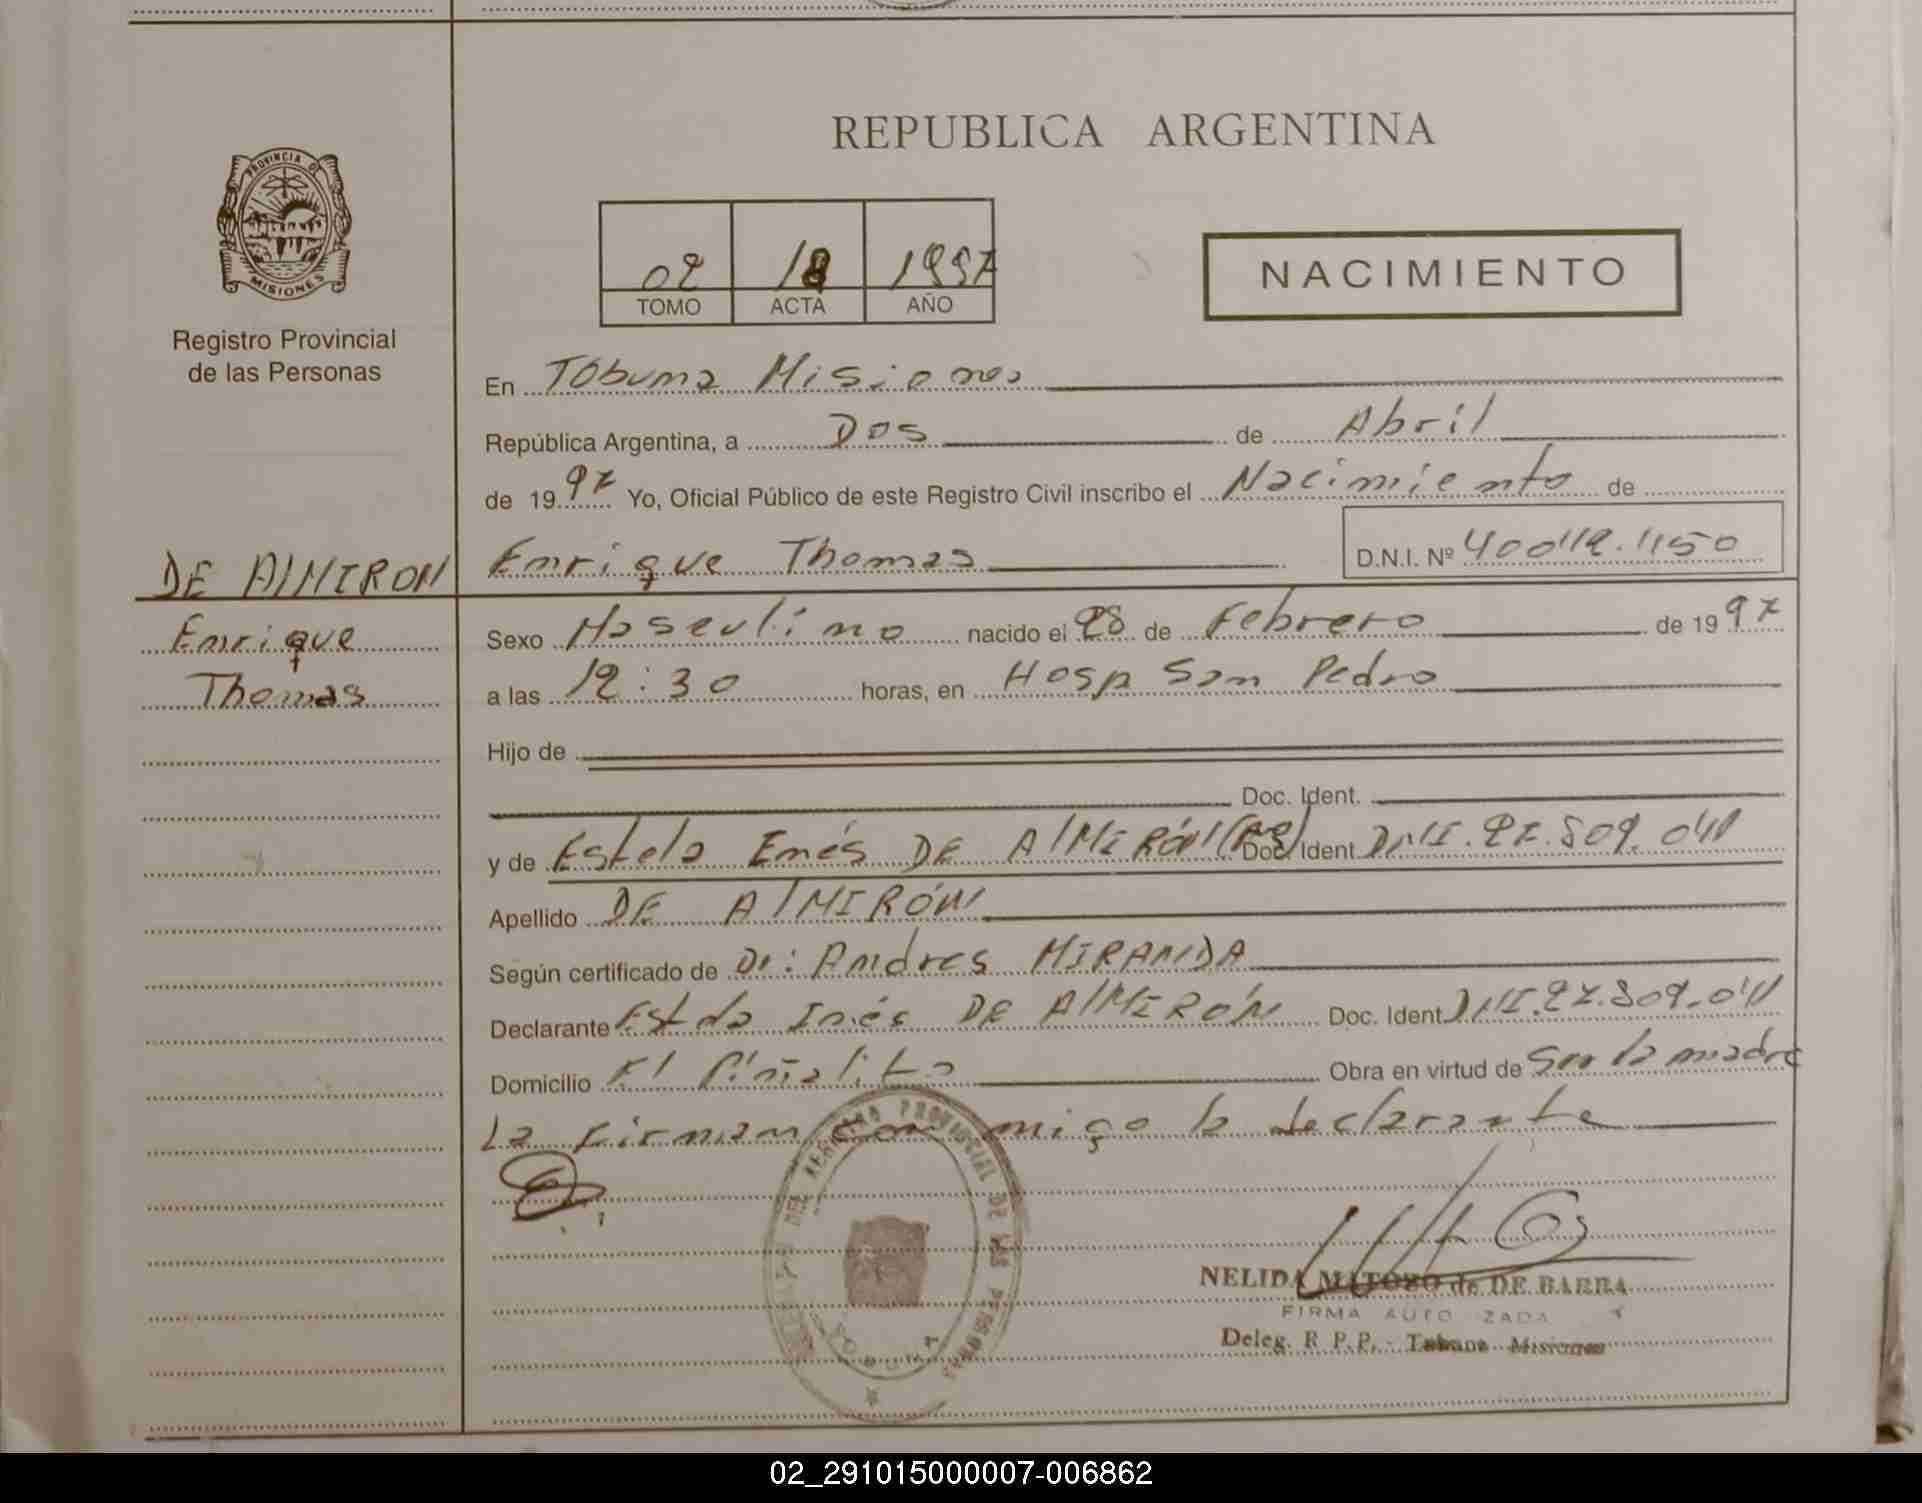 REPUBLICA ARGENTINA
PROVINCIA DE
MISIONES
Registro Provincial
de las Personas
02 18 1997
TOMO ACTA AÑO
NACIMIENTO
En Tobuna Misiones
República Argentina, a Dos de Abril
de 1997 Yo, Oficial Público de este Registro Civil inscribo el Nacimiento de
DE AlMIRON Enrique Thomas D.N.I. Nº
Enrique
Thomas
Sexo Masculino nacido el 28 de Febrero de 1997
a las 12:30 horas, en Hosp San Pedro
Hijo de
Doc. Ident.
y de Estela Inés DE AlMIRÓN Doc. Ident. DNI.27.809.041
Apellido DE AlMIRÓN
Según certificado de Dr: Andres MIRANDA
Declarante Estela Inés DE AlMIRÓN Doc. Ident. DNI.27.809.041
Domicilio El Piñalito Obra en virtud de Ser la madre
La Firman con migo la declarante
REGISTRO PROVINCIAL DE LAS PERSONAS
TOBUNA
NELIDA MATOZO de DE BARRA
FIRMA AUTORIZADA
Deleg. R.P.P. - Tobuna - Misiones
02_291015000007-006862